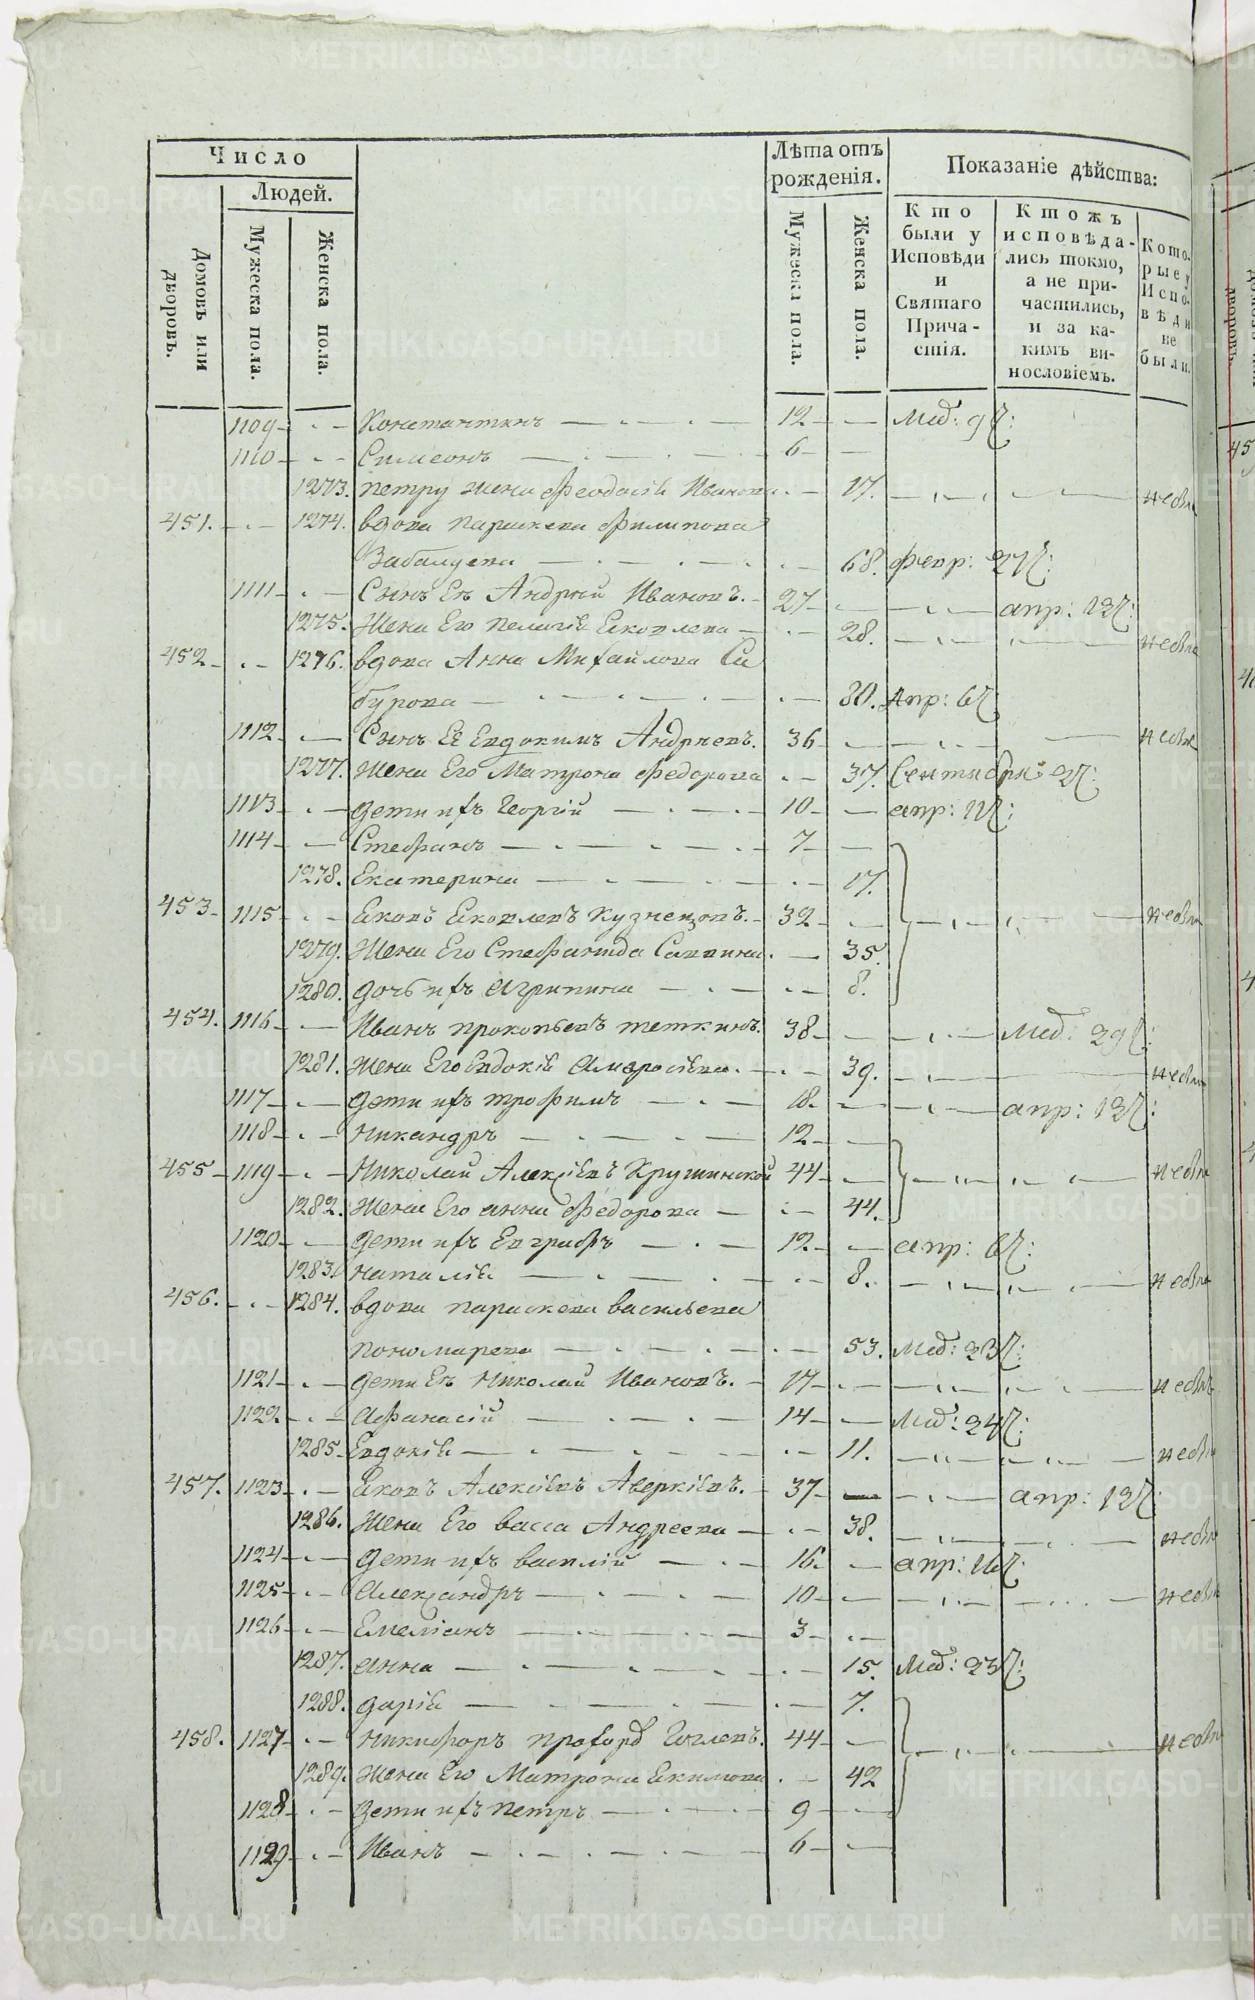 Число
Людей.
Домовъ или дворовъ.
Мужеска пола.
Женска пола.
Лѣта отъ рожденія.
Мужеска пола.
Женска пола.
Показаніе дѣйства:
Кто были у Исповѣди и Святаго Прича-стія.
Ктожъ исповѣда-лись токмо, а не при-частились, и за ка-кимъ ви-нословіемъ.
Кото-рые у Испо-вѣди не были.
1109 Константинъ 12
1110 Симеонъ 6
1273. Петру жена Феодосіѣ Иванова 17.
451. 1274. вдова Параскева Филипова
Забалуева 68. февр: 27
1111 Сынъ Еѣ Андрѣй Ивановъ. 27 апр: 13
1275. Жена Его Пелагіѣ Ековлева 28.
452 1276. вдова Анна Михайлова Са
бурова 80. Апр: 6
1112 Сынъ Её Евдокимъ Андрѣевъ. 36
1277. Жена Его Матрона Федорова 37. Сентября 2
1113 дети ихъ Георгій 10 апр: 12
1114 Стефанъ 7
1278. Екатерина 17.
453 1115 Ековъ Ековлевъ Кузнецовъ. 32
1279. Жена Его Стефанида Саввина 35.
1280. дочь ихъ Агрипина 8.
454. 1116 Иванъ Прокопьевъ Теткинъ. 38 29
1281. Жена Его Евдокіѣ Амвросіева 39.
1117 дети ихъ Трофимъ 18. апр: 13
1118 Никандръ 12
455 1119 Николай Алексіевъ Крушинской 44
1282. Жена Его Анна Федорова 44.
1120 дети ихъ Евграфъ 12. апр: 6
1283. Наталіѣ 8.
456. 1284. вдова Параскева Васильева
Пономарева 53. 23
1121 дети Еѣ Николай Ивановъ. 17
1122. Афанасій 14 24
1285. Евдокіѣ 11.
457. 1123 Ековъ Алексіевъ Аверкіевъ. 37 апр: 13
1286. Жена Его Васса Андреева 38.
1124 дети ихъ Василій 16. апр: 16
1125 Александръ 10
1126 Емеліанъ 3
1287. Анна 15. 23
1288. Даріѣ 7.
458. 1127 Никифоръ 44
1289. Жена Его Матрона Екимова 42
1128 дети ихъ Петръ 9
1129 Иванъ 6
METRIKI.GASO-URAL.RU